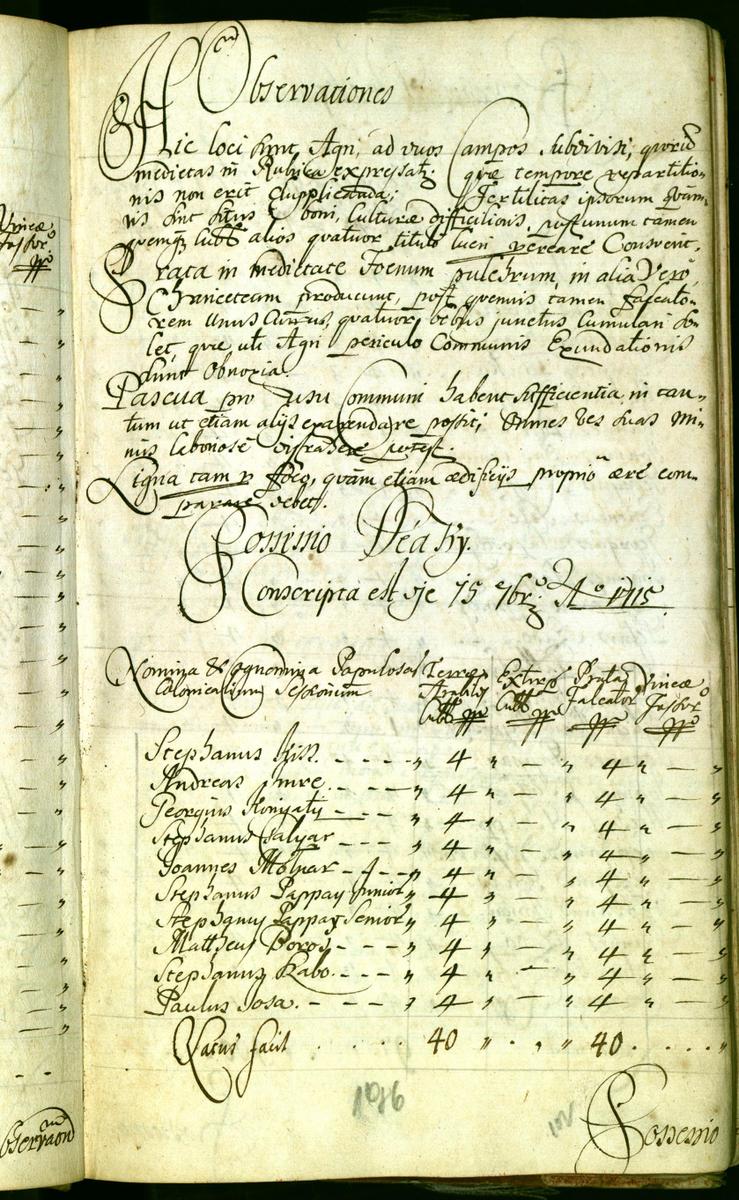 Observationes
Hic loci sunt Agri, ad duos Campos Subdivisi, quorum
medietas in Rubrica expressat: quæ tempore repartitio-
nis non erit dupplicanda; Fertilitas ipsorum quam-
vis sint situs boni, Culturæ difficilioris, postunum tamen
quemq cubb alios quatuor titulo lucri percare Consvevit.
Prata in medietate Foenum pulchrum, in alia Vero
Chariceteam producunt, post quemvis tamen falcato-
rem Unus Currus, quatuor bobus junctus Cumulari so-
let, quæ uti Agri periculo Communis Exundationis
sunt Obnoxia.
Pascua pro usu Communi habent sufficientia, in tan-
tum ut etiam alijs exarendare possit; Omnes res suas mi-
nus laboriose distrahere potest.
Ligna tam p foco, quam etiam ædificijs proprio ære com-
parare debet.
Possessio Déáky.
Conscripta est die 15 7br: Ao 1715.
Nomina & Cognomina Populosar
Colonicalium Sessionum
Terræ Arabiles Cubb
Extirp Cubb
Prata Falcator
Vineæ Fossor
Stephanus Kiss. - - - " 4 " — " 4 " — "
Andreas Imre. - - - " 4 " — " 4 " — "
Georgius Konyati " 4 " — " 4 " — "
Stephanus Csalyar - - - " 4 " — " 4 " — "
Joannes Molnar - - - " 4 " — " 4 " — "
Stephanus Pappay Junior " 4 " — " 4 " — "
Stephanus Pappay Senior " 4 " — " 4 " — "
Mattheus Boros - - - " 4 " — " 4 " — "
Stephanus Rabo. - - - " 4 " — " 4 " — "
Paulus Josa. - - - " 4 " — " 4 " — "
Latus facit . . . . 40 " . " " 40 . . . . "
196
Possessio
Observaon